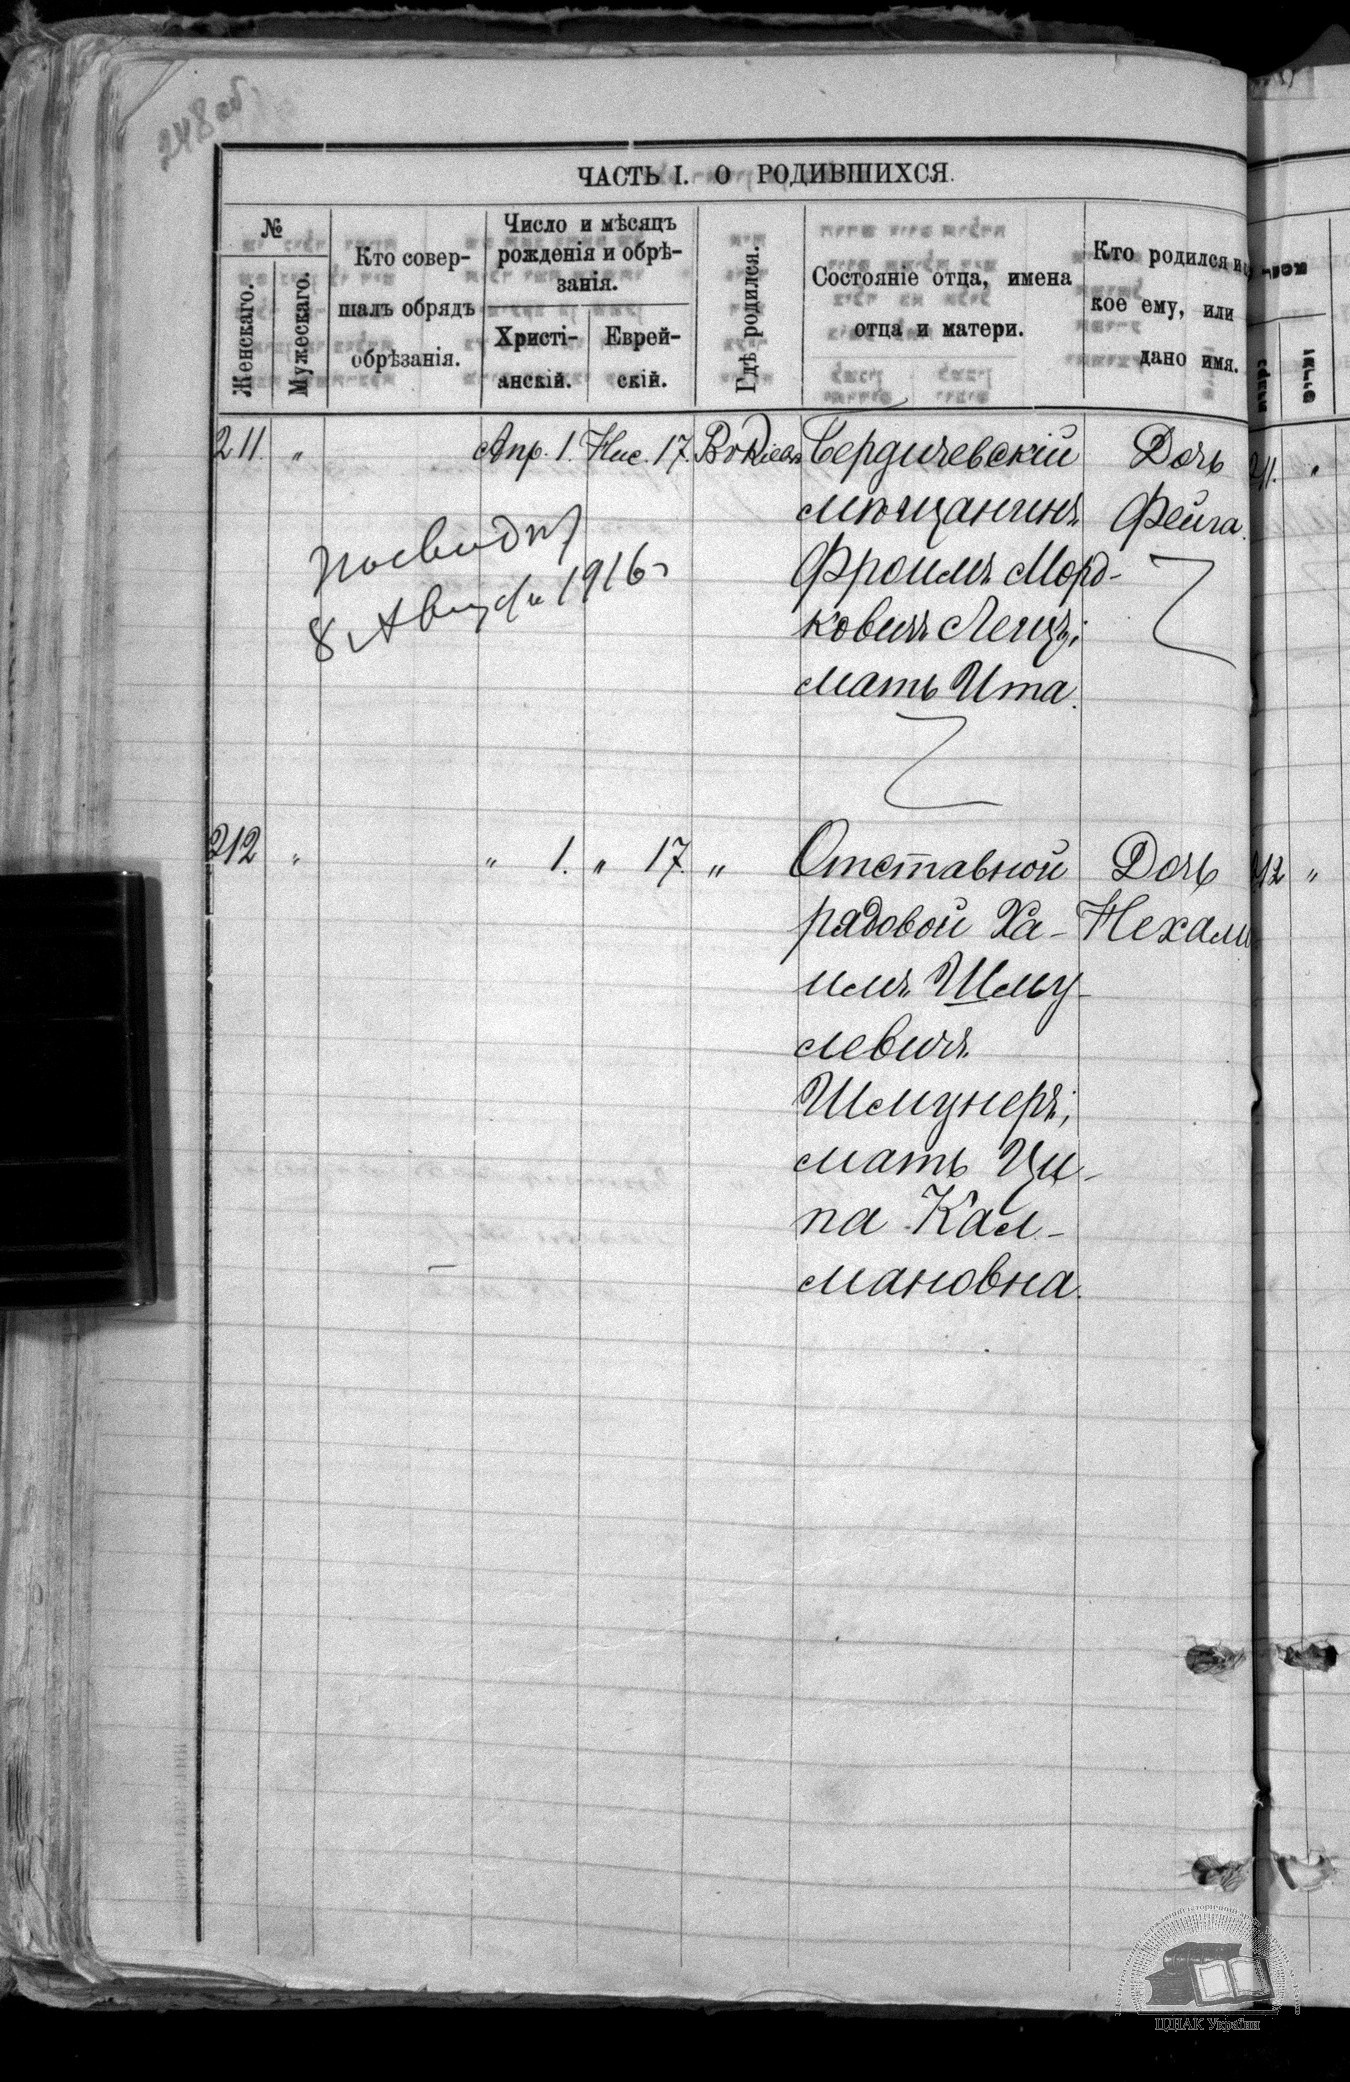 248 об
ЧАСТЬ I. О РОДИВШИХСЯ.
№
Женскаго.
Мужескаго.
Кто совер-
шалъ обрядъ
обрѣзанія.
Число и мѣсяцъ
рожденія и обрѣ-
занія.
Христі-
анскій.
Еврей-
скій.
Гдѣ родился.
Состояніе отца, имена
отца и матери.
Кто родился и
кое ему, или
дано имя.
211. „ Апр. 1. Нис. 17. Въ Кіевѣ Бердичевскій Дочь
мѣщанинъ Фейга.
Фроимъ Морд-
ковичъ Ленцъ;
мать Ита.
8 Августа 1916 г
212 „ „ 1. „ 17. „ Отставной Дочь
рядовой Ха- Нехама
имъ Шму-
левичъ
Шмунеръ;
мать Ци-
па Кал-
мановна.
211. „
212 „
ЦДІАК України